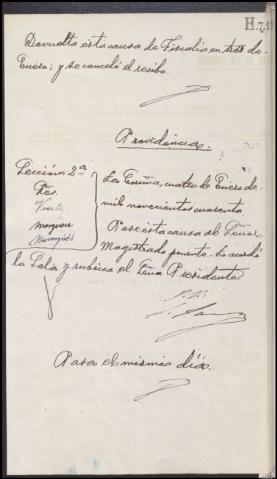 H.7.
Devuelta esta causa de Fiscalia en tres de
Enero; y se canceló el recibo.
Providencia.
Sección 2ª
Sres.
La Coruña, cuatro de Enero de
mil novecientos cuarenta
Pase esta causa al Señor
Magistrado ponente. Lo acordó
la Sala y rubrica el Señor Presidente
Pasa el mismo día.